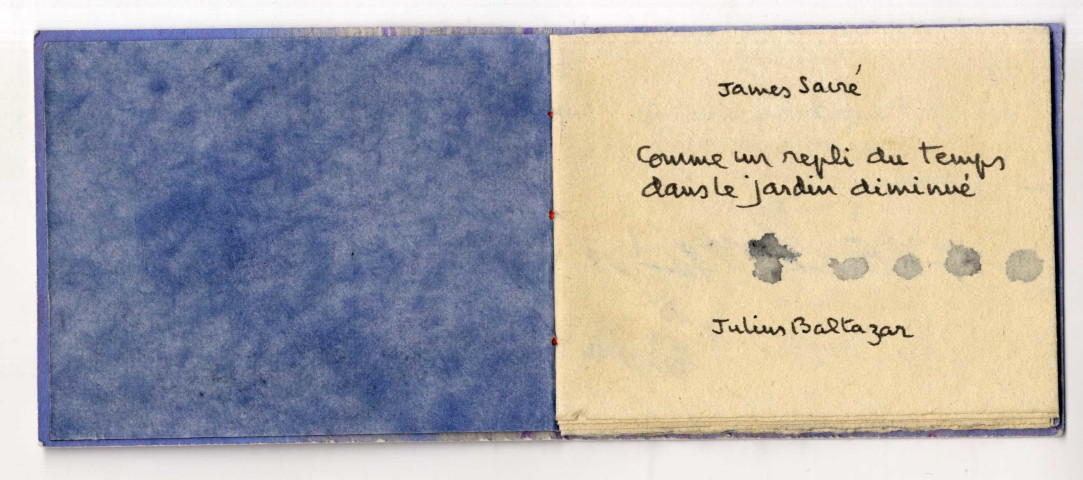 James Sacré
Comme un repli du temps
dans le jardin diminué
Julius Baltazar